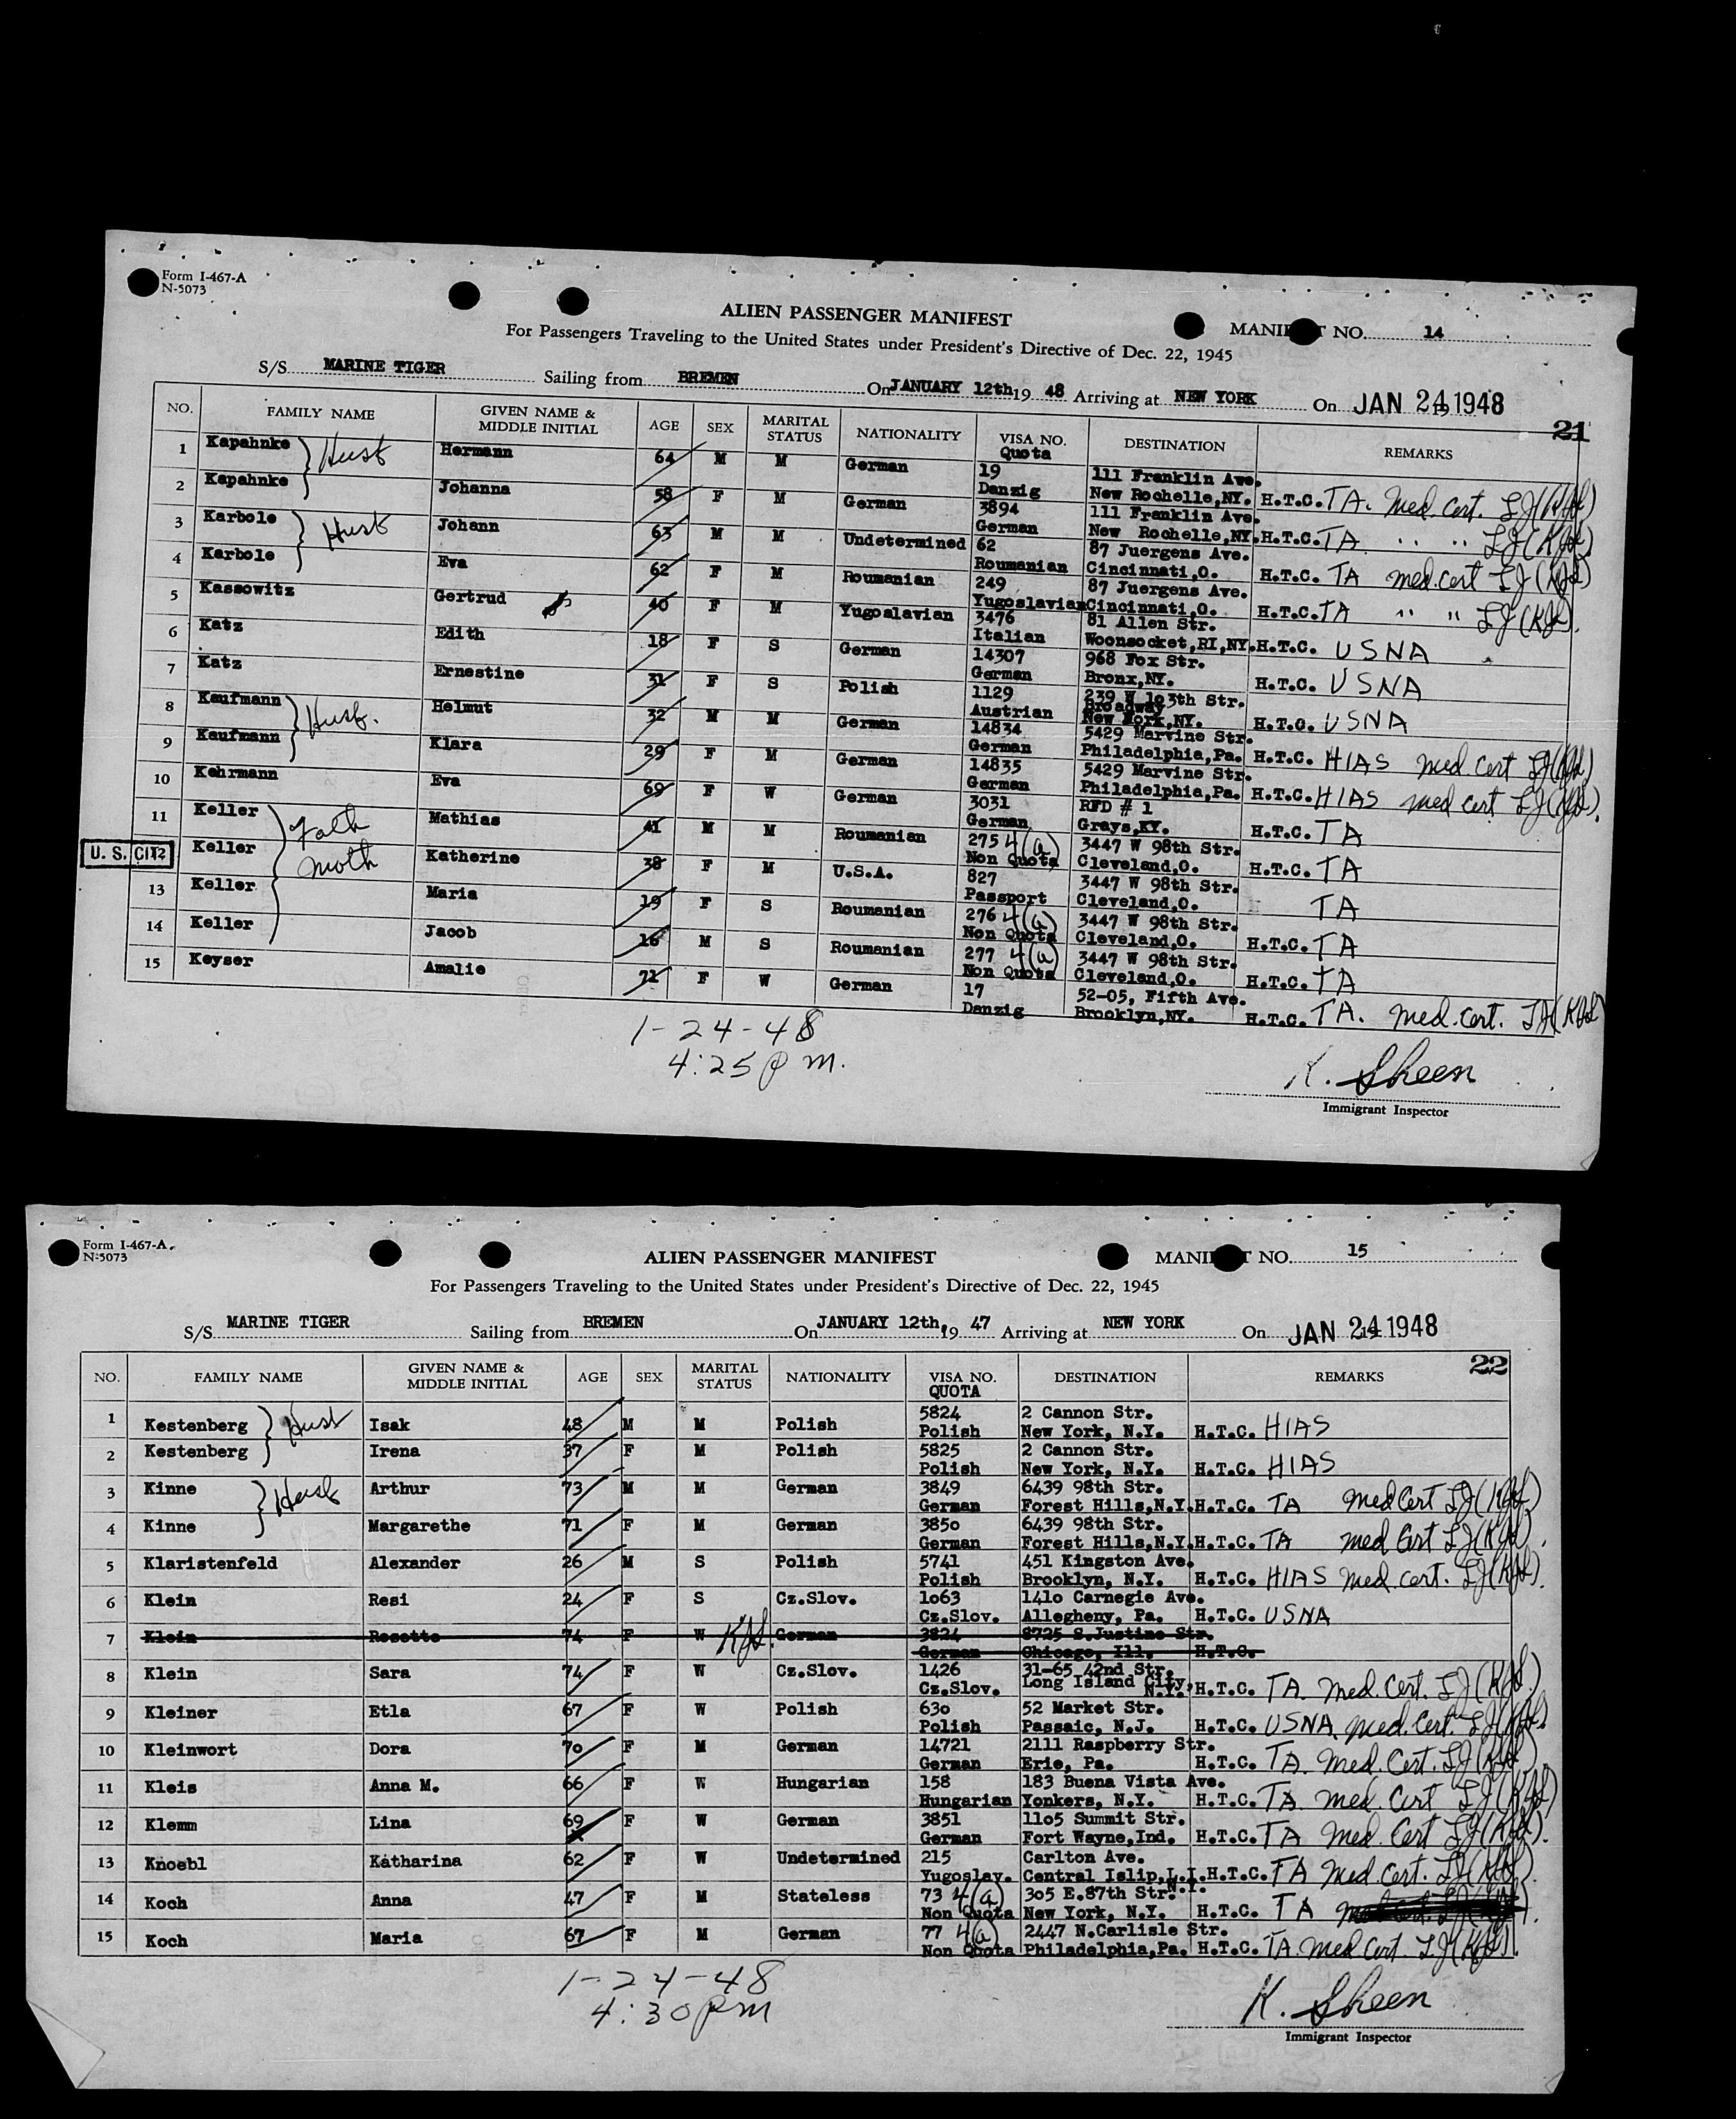 Form I-467-A
N-5073
ALIEN PASSENGER MANIFEST
MANIF T NO. 14
For Passengers Traveling to the United States under President's Directive of Dec. 22, 1945
S/S MARINE TIGER Sailing from BREMEN On JANUARY 12th 19 48 Arriving at NEW YORK On JAN 24 1948
21
NO. FAMILY NAME GIVEN NAME & MIDDLE INITIAL AGE SEX MARITAL STATUS NATIONALITY VISA NO. Quota DESTINATION REMARKS
1 Kapahnke Husb Hermann 64 M M German 19 Danzig 111 Franklin Ave. New Rochelle,NY. H.T.C. TA. Med. Cert.
2 Kapahnke Johanna 58 F M German 3894 German 111 Franklin Ave. New Rochelle,NY. H.T.C. TA " "
3 Karbole Husb Johann 63 M M Undetermined 62 Roumanian 87 Juergens Ave. Cincinnati,O. H.T.C. TA med. cert
4 Karbole Eva 62 F M Roumanian 249 Yugoslavian 87 Juergens Ave. Cincinnati,O. H.T.C. TA " "
5 Kassowitz Gertrud 40 F M Yugoslavian 3476 Italian 81 Allen Str. Woonsocket,RI,NY. H.T.C. USNA
6 Katz Edith 18 F S German 14307 German 968 Fox Str. Bronx,NY. H.T.C. USNA
7 Katz Ernestine 31 F S Polish 1129 Austrian 239 W 103th Str. Broadway New York,NY. H.T.C. USNA
8 Kaufmann Husb. Helmut 32 M M German 14834 German 5429 Marvine Str. Philadelphia,Pa. H.T.C. HIAS med. cert
9 Kaufmann Klara 29 F M German 14835 German 5429 Marvine Str. Philadelphia,Pa. H.T.C. HIAS med cert
10 Kehrmann Eva 69 F W German 3031 German RFD # 1 Grays,KY. H.T.C. TA
11 Keller Fath Mathias 41 M M Roumanian 275 4(a) Non Quota 3447 W 98th Str. Cleveland,O. H.T.C. TA
U. S. CIT 12 Keller Moth Katherine 38 F M U.S.A. 827 Passport 3447 W 98th Str. Cleveland,O. TA
13 Keller Maria 19 F S Roumanian 276 4(a) Non Quota 3447 W 98th Str. Cleveland,O. H.T.C. TA
14 Keller Jacob 16 M S Roumanian 277 4(a) Non Quota 3447 W 98th Str. Cleveland,O. H.T.C. TA
15 Keyser Amalie 71 F W German 17 Danzig 52-05, Fifth Ave. Brooklyn,NY. H.T.C. TA. Med. Cert.
1-24-48
4:25 p m.
K. Sheen
Immigrant Inspector
Form I-467-A
N-5073
ALIEN PASSENGER MANIFEST
MANI T NO. 15
For Passengers Traveling to the United States under President's Directive of Dec. 22, 1945
S/S MARINE TIGER Sailing from BREMEN On JANUARY 12th, 19 47 Arriving at NEW YORK On JAN 24 1948
22
NO. FAMILY NAME GIVEN NAME & MIDDLE INITIAL AGE SEX MARITAL STATUS NATIONALITY VISA NO. QUOTA DESTINATION REMARKS
1 Kestenberg Husb Isak 48 M M Polish 5824 Polish 2 Cannon Str. New York, N.Y. H.T.C. HIAS
2 Kestenberg Irena 37 F M Polish 5825 Polish 2 Cannon Str. New York, N.Y. H.T.C. HIAS
3 Kinne Husb Arthur 73 M M German 3849 German 6439 98th Str. Forest Hills,N.Y. H.T.C. TA Med Cert
4 Kinne Margarethe 71 F M German 3850 German 6439 98th Str. Forest Hills,N.Y. H.T.C. TA med Cert
5 Klaristenfeld Alexander 26 M S Polish 5741 Polish 451 Kingston Ave. Brooklyn, N.Y. H.T.C. HIAS Med. cert.
6 Klein Resi 24 F S Cz.Slov. 1063 Cz.Slov. 1410 Carnegie Ave. Allegheny, Pa. H.T.C. USNA
7 Klein Rosette 74 F W German 3824 German 8725 S.Justine Str. Chicago, Ill. H.T.C.
8 Klein Sara 74 F W Cz.Slov. 1426 Cz.Slov. 31-65 42nd Str. Long Island City, N.Y. H.T.C. TA. Med. Cert.
9 Kleiner Etla 67 F W Polish 630 Polish 52 Market Str. Passaic, N.J. H.T.C. USNA. Med. Cert.
10 Kleinwort Dora 70 F M German 14721 German 2111 Raspberry Str. Erie, Pa. H.T.C. TA. Med. Cert.
11 Kleis Anna M. 66 F W Hungarian 158 Hungarian 183 Buena Vista Ave. Yonkers, N.Y. H.T.C. TA. med. Cert
12 Klemm Lina 69 F W German 3851 German 1105 Summit Str. Fort Wayne,Ind. H.T.C. TA Med. Cert
13 Knoebl Katharina 62 F W Undetermined 215 Yugoslav. Carlton Ave. Central Islip,L.I. N.Y. H.T.C. TA Med. Cert.
14 Koch Anna 47 F M Stateless 73 4(a) Non Quota 305 E.87th Str. New York, N.Y. H.T.C. TA
15 Koch Maria 67 F M German 77 4(a) Non Quota 2447 N.Carlisle Str. Philadelphia,Pa. H.T.C. TA Med Cert.
1-24-48
4:30 pm
K. Sheen
Immigrant Inspector